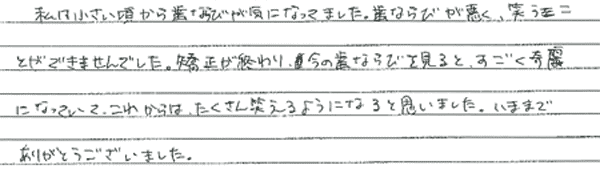 私は小さい頃から歯ならびが気になってました。歯ならびが悪く、笑うこ
とができませんでした。矯正が終わり、今の歯ならびを見ると、すごく奇麗
になっていて、これからは、たくさん笑えるようになると思いました。いままで
ありがとうございました。